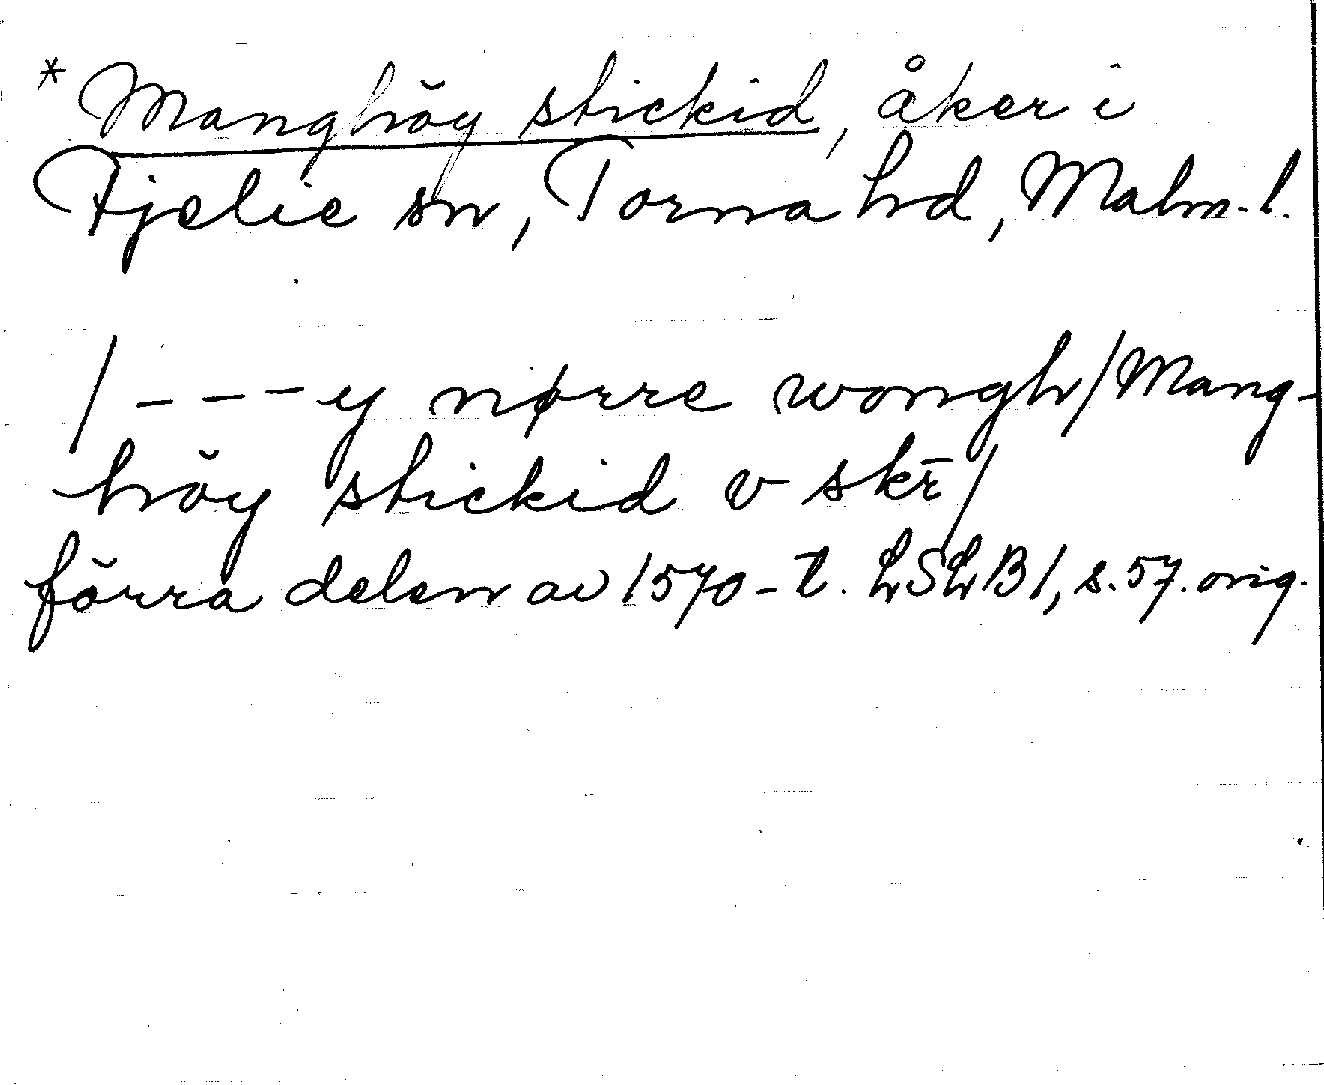 * Manghöy stickid, åker i
Fjelie sn, Torna hd, Malm. l.
/---y nørre wongh/Mang-
höy stickid v skr̄/
förra delen av 1570-t. LSLB1, s.57. orig.